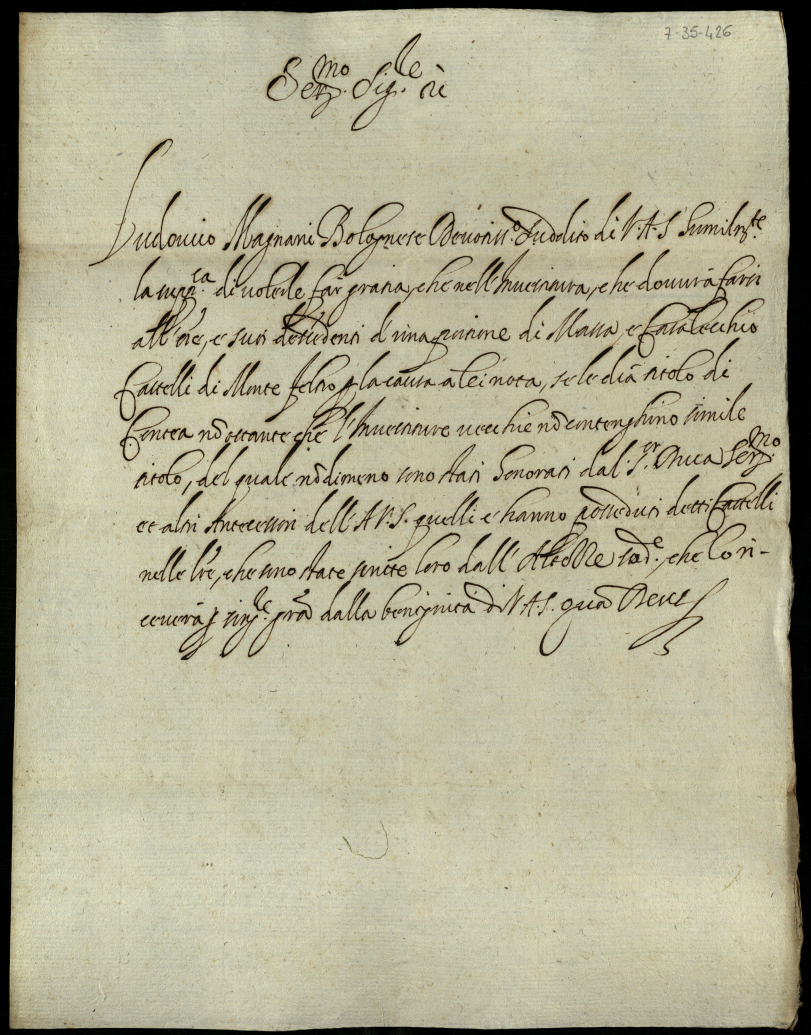 7-35-426
Ser.mo Sig.re
Ludovico Magnani Bolognese Devotiss.o Suddito di V.A.S. humilm.te
la supp.ca di volerle far gratia, che nell'Investitura, che dovrà farsi
all'Ore, e suoi descendenti d'una portione di Massa, e Casalecchio
Castelli di Monte feltro p la causa a lei nota, se le dia titolo di
Contea nõ ostante che l'Investiture vecchie nõ contenghino simile
titolo, del quale nõdimeno sono stati honorati dal S.r Duca Ser.mo
et altri Antecessori dell'A.V.S. quelli c'hanno posseduti detti Castelli
nelle lre, che sono state scritte loro dall' Altezze sud.e, che lo ri-
ceverà p sing.le gra dalla benignità di V.A.S. quã Deus